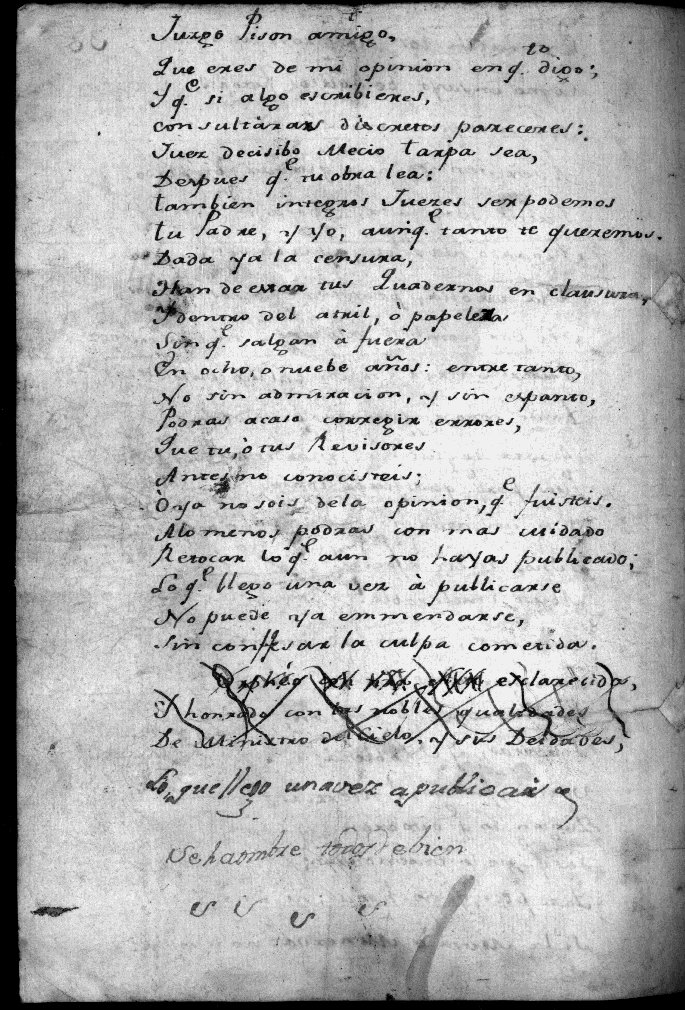 Juzgo Pison amigo,
Que eres de mi opinion en q.e digo;
Y q.e si algo escribieres,
consultaras discretos pareceres:
Juez decisibo Mecio tarpa sea,
Despues q.e tu obra lea:
tambien integros Juezes ser podemos
tu Padre, y yo, aunq.e tanto te queremos.
Dada ya la censura,
Han de estar tus Quadernos en clausura,
Y dentro del atril, ò papelera
Sin q.e salgan à fuera
En ocho, o nuebe años: entre tanto,
No sin admiracion, y sin espanto,
Podras acaso corregir errores,
Que tu, ò tus Revisores
Antes no conocisteis;
Ò ya no sois de la opinion, q.e fuisteis.
Alo menos podras con mas cuidado
Retocar lo q.e aun no hayas publicado;
Lo q.e llego una vez à publicarse
No puede ya emmendarse,
Sin confesar la culpa cometida.
Orphéo esclarecida,
Y honrado con las nobles qualidades
De Ministro del Cielo, y sus Deidades,
Lo, que llego una vez a publicarse